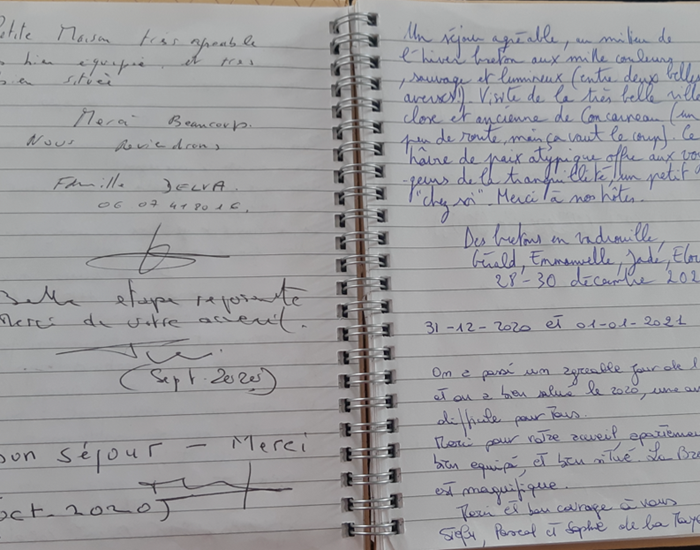 Petite Maison très agréable
bien équipée et très
bien située
Merci Beaucoup.
Nous Reviendrons
Famille DELVA
06 07 41 80 16.
Belle étape reposante
Merci de votre accueil.
(Sept. 2020)
Bon séjour – Merci
oct. 2020)
Un séjour agréable, au milieu de
l'hiver breton aux mille couleurs
, sauvage et lumineux (entre deux belles
averses!) Visite de la très belle ville
close et ancienne de Concarneau (un
peu de route, mais ça vaut le coup). Ce
hâvre de paix atypique offre aux voya
-geurs de la tranquillité un petit
"chez soi". Merci à nos hôtes.
Des bretons en vadrouille,
Gérald, Emmanuelle, Jade, Elo
28-30 décembre 202
31-12-2020 et 01-01-2021
On a passé un agréable jour de l
et on a bien salué le 2020, une
difficile pour tous.
Merci pour votre accueil, apartemen
bien equipé, et bien situé. La Br
est magnifique.
Merci et bon courage à vous
Pascal et Sophie de la